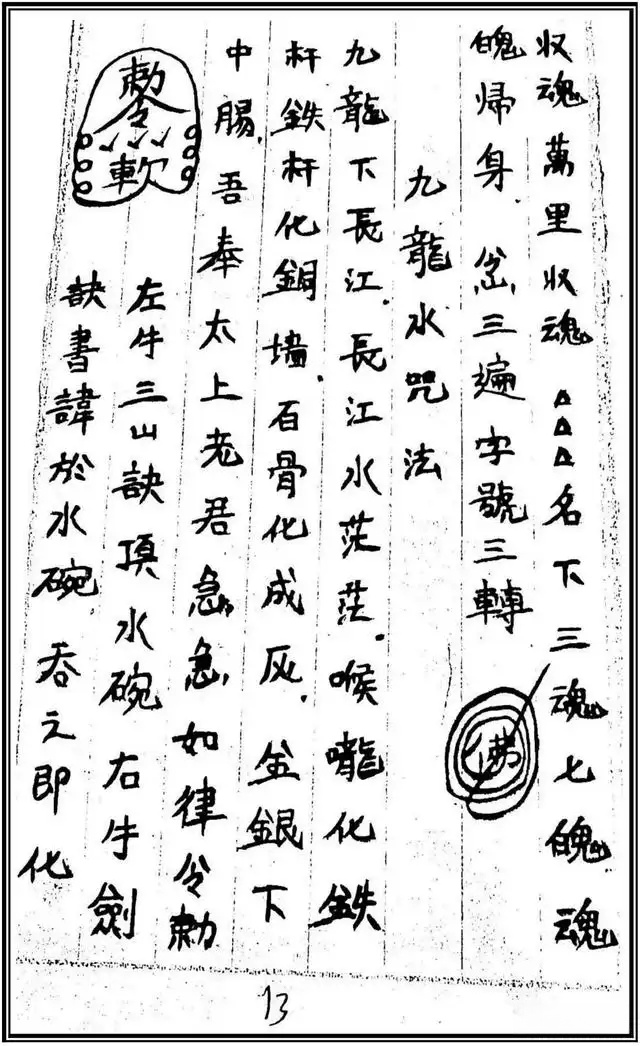 収魂萬里収魂 △△△名下三魂七魄魂
魄歸身 三遍字號三轉
佛
九龍水咒法
九龍下長江.長江水茫茫.喉嚨化鉄
杆鉄杆化銅墙.石骨化成灰.金銀下
中腸.吾奉太上老君急急如律令勅
勅令
軟
左牛三山訣頂水碗右牛劍
訣書諱於水碗吞之即化
13